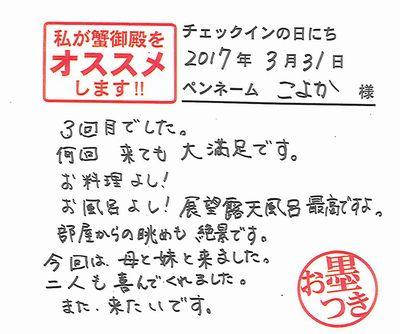 私が蟹御殿を
オススメ
します!!
チェックインの日にち
2017年 3月31日
ペンネーム こよか 様
3回目でした。
何回 来ても 大満足です。
お料理 よし!
お風呂よし! 展望露天風呂 最高ですよ。
部屋からの眺めも 絶景です。
今回は、母と妹と来ました。
二人も 喜んでくれました。
また、来たいです。
お墨つき